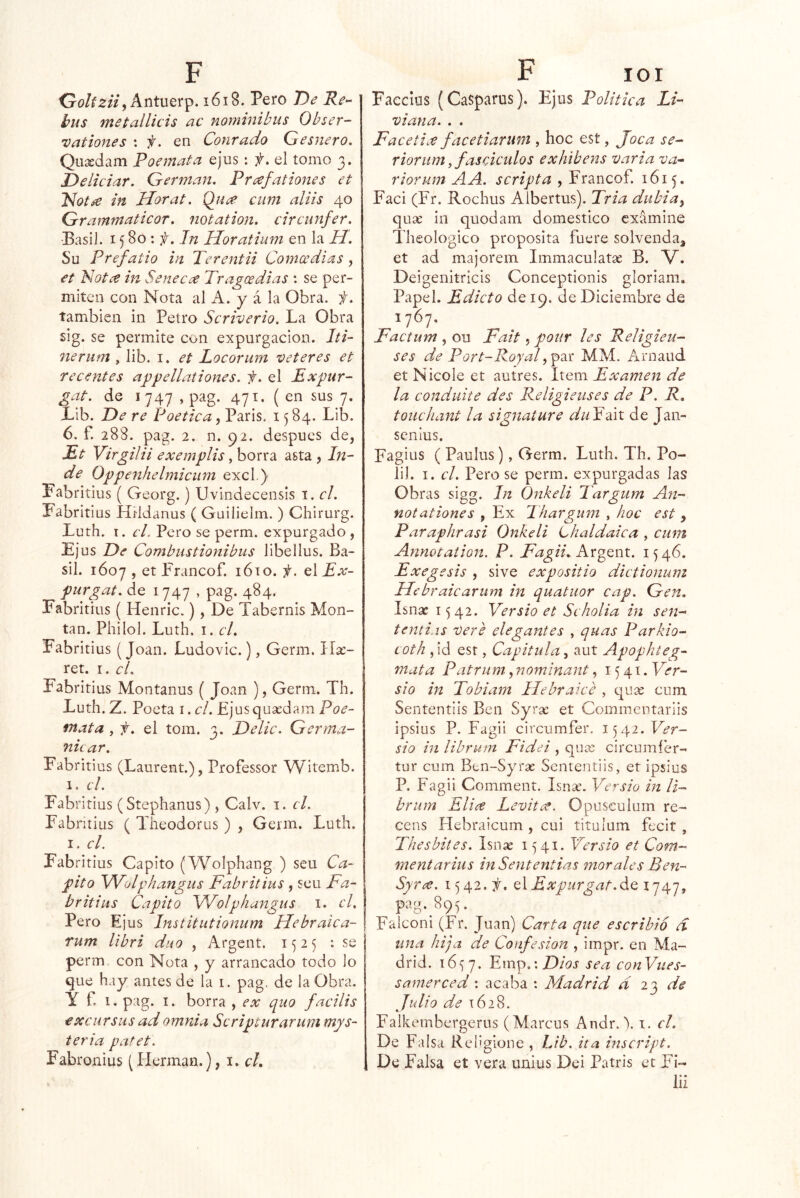 F
Goltzii, Antuerp. 1618. Pero De Re-
bus metallicis ac nominibus Obser-
vationes : ℣. en Conrado Gesnero.
Quædam Poemata ejus : ℣. el tomo 3.
Deliciar. German. Præfationes et
Notæ in Horat. Quæ cum aliis 40
Grammaticor. notation. circunfer.
Basil. 1580 : ℣. In Horatium en la H.
Su Prefatio in Terentii Comœdias,
et Notæ in Senecæ Tragœdias : se per-
miten con Nota al A. y á la Obra. ℣.
tambien in Petro Scriverio. La Obra
sig. se permite con expurgacion. Iti-
nerum, lib. 1. et Locorum veteres et
recentes appellationes. ℣. el Expur-
gat. de 1747, pag. 471. (en sus 7.
Lib. De re Poetica, Paris. 1584. Lib.
6. f. 288. pag. 2. n. 92. despues de,
Et Virgilii exemplis, borra asta, In-
de Oppenhelmicum excl.)
Fabritius (Georg.) Uvindecensis 1. cl.
Fabritius Hildanus (Guilielm.) Chirurg.
Luth. 1. cl. Pero se perm. expurgado,
Ejus De Combustionibus libellus. Ba-
sil. 1607, et Francof. 1610. ℣. el Ex-
purgat. de 1747, pag. 484.
Fabritius (Henric.), De Tabernis Mon-
tan. Philol. Luth. 1. cl.
Fabritius (Joan. Ludovic.), Germ. Hæ-
ret. 1. cl.
Fabritius Montanus (Joan), Germ. Th.
Luth. Z. Poeta 1. cl. Ejus quædam Poe-
mata, ℣. el tom. 3. Delic. Germa-
nicar.
Fabritius (Laurent.), Professor Witemb.
1. cl.
Fabritius (Stephanus), Calv. 1. cl.
Fabritius (Theodorus), Germ. Luth.
1. cl.
Fabritius Capito (Wolphang) seu Ca-
pito Wolphangus Fabritius, seu Fa-
britius Capito Wolphangus 1. cl.
Pero Ejus Institutionum Hebraica-
rum libri duo, Argent. 1525 : se
perm. con Nota, y arrancado todo lo
que hay antes de la 1. pag. de la Obra.
Y f. 1. pag. 1. borra, ex quo facilis
excursus ad omnia Scripturarum mys-
teria patet.
Fabronius (Herman.), 1. cl.
F 101
Faccius (Casparus). Ejus Politica Li-
viana. . .
Facetiæ facetiarum, hoc est, Joca se-
riorum, fasciculos exhibens varia va-
riorum AA. scripta, Francof. 1615.
Faci (Fr. Rochus Albertus). Tria dubia,
quæ in quodam domestico exâmine
Theologico proposita fuere solvenda,
et ad majorem Immaculatæ B. V.
Deigenitricis Conceptionis gloriam.
Papel. Edicto de 19. de Diciembre de
1767.
Factum, ou Fait, pour les Religieu-
ses de Port-Royal, par MM. Arnaud
et Nicole et autres. Item Examen de
la conduite des Religieuses de P. R.
touchant la signature du Fait de Jan-
senius.
Fagius (Paulus), Germ. Luth. Th. Po-
lil. 1. cl. Pero se perm. expurgadas las
Obras sigg. In Onkeli Targum An-
notationes, Ex Thargum, hoc est,
Paraphrasi Onkeli Chaldaica, cum
Annotation. P. Fagii. Argent. 1546.
Exegesis, sive expositio dictionum
Hebraicarum in quatuor cap. Gen.
Isnæ 1542. Versio et Scholia in sen-
tentias verè elegantes, quas Parkio-
coth, id est, Capitula, aut Apophteg-
mata Patrum, nominant, 1541. Ver-
sio in Tobiam Hebraicè, quæ cum
Sententiis Ben Syræ et Commentariis
ipsius P. Fagii circumfer. 1542. Ver-
sio in librum Fidei, quæ circumfer-
tur cum Ben-Syræ Sententiis, et ipsius
P. Fagii Comment. Isnæ. Versio in li-
brum Eliæ Levitæ. Opusculum re-
cens Hebraicum, cui titulum fecit,
Thesbites. Isnæ 1541. Versio et Com-
mentarius in Sententias morales Ben-
Syræ. 1542. ℣. el Expurgat. de 1747,
pag. 895.
Falconi (Fr. Juan) Carta que escribió á
una hija de Confesion, impr. en Ma-
drid. 1657. Emp.: Dios sea con Vues-
samerced : acaba : Madrid á 23 de
Julio de 1628.
Falkembergerus (Marcus Andr.). 1. cl.
De Falsa Religione, Lib. ita inscript.
De Falsa et vera unius Dei Patris et Fi-
lii